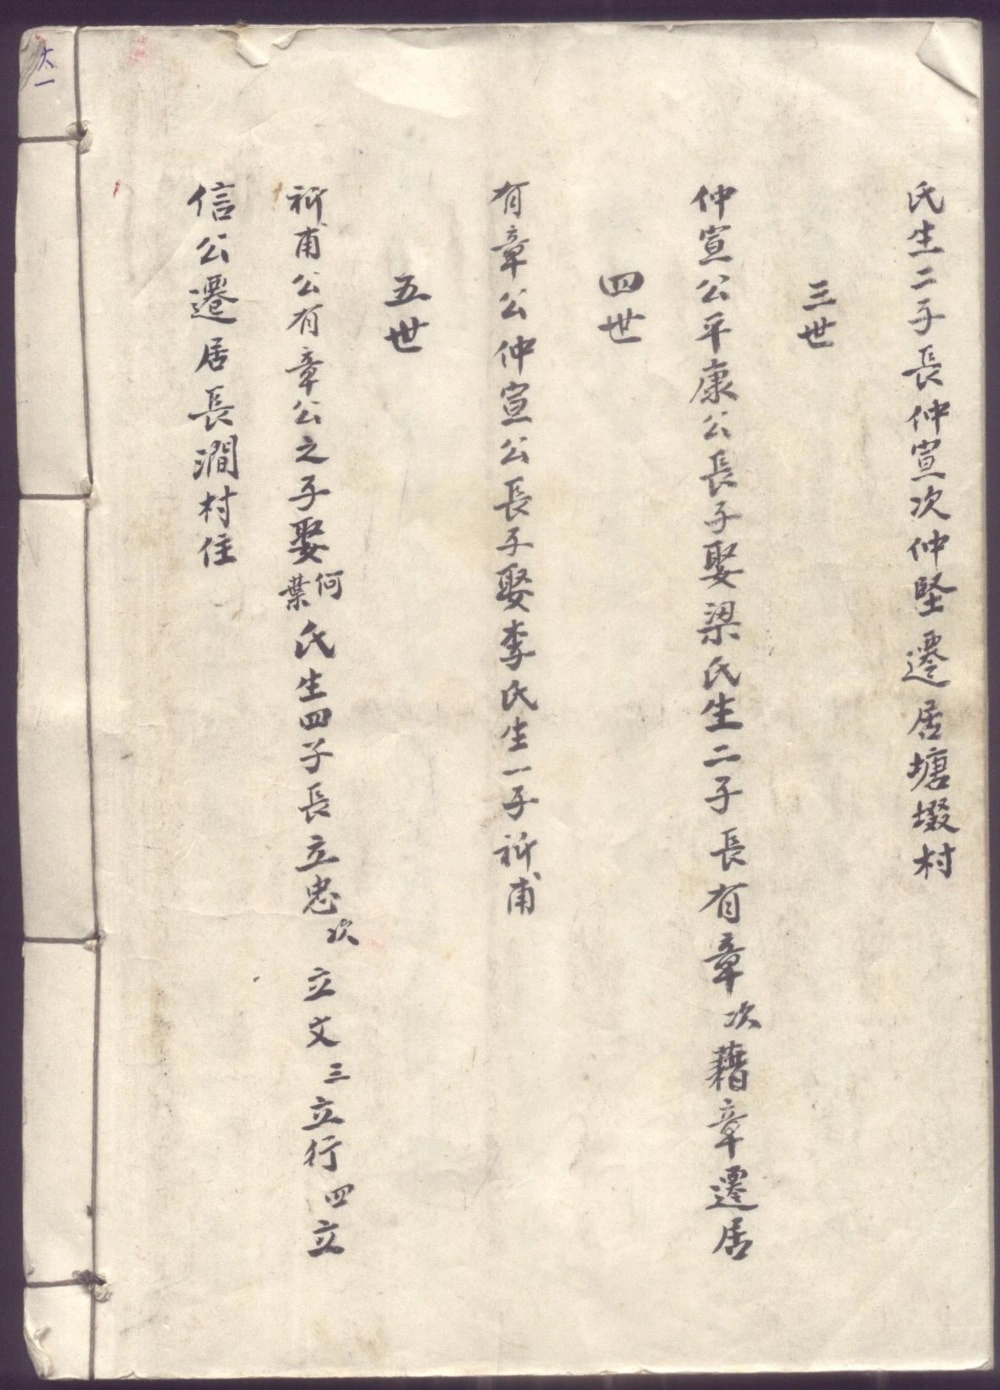 氏生二子長仲宣次仲堅遷居塘塅村
三世
仲宣公平康公長子娶梁氏生二子長有章次藉章遷居
四世
有章公仲宣公長子娶李氏生一子祈甫
五世
祈甫公有章公之子娶何葉氏生四子長立忠次立文三立行四立
信公遷居長澗村住
六一